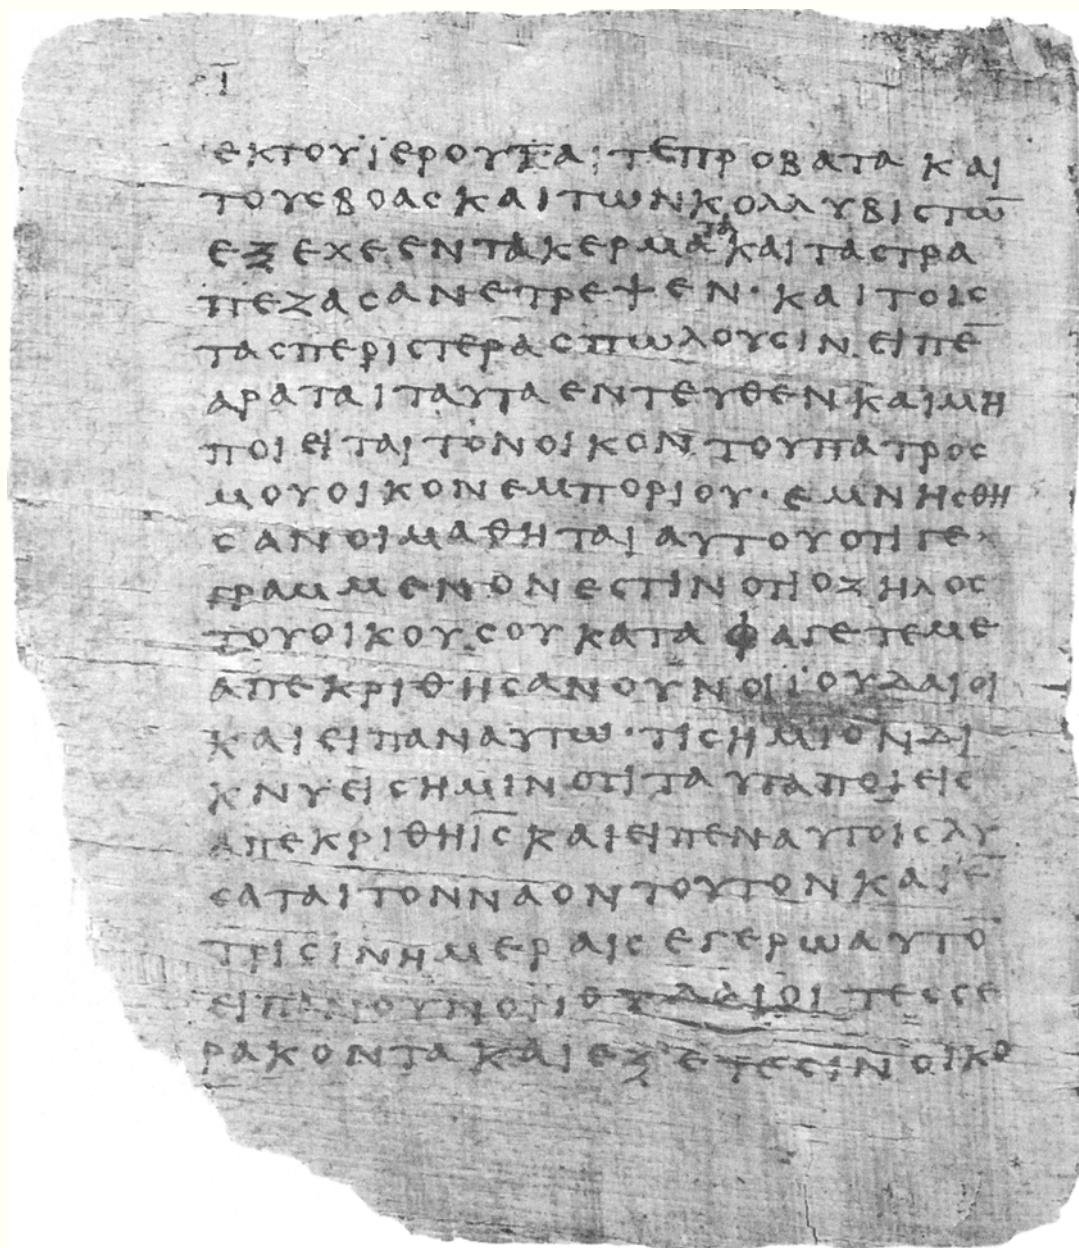 Ι̅
ΕΚΤΟΥΪΕΡΟΥΤΑ ΤΕΠΡΟΒΑΤΑ ΚΑΙ
ΤΟΥϹΒΟΑϹΚΑΙΤΩΝΚΟΛΛΥΒΙϹΤΩ̅
ΕΞΕΧΕΕΝΤΑΚΕΡΜΑΤΑΚΑΙΤΑϹΤΡΑ
ΠΕΖΑϹΑΝΕΤΡΕΨΕΝ·ΚΑΙΤΟΙϹ
ΤΑϹΠΕΡΙϹΤΕΡΑϹΠΩΛΟΥϹΙΝΕΙΠΕ̅
ΑΡΑΤΑΙΤΑΥΤΑΕΝΤΕΥΘΕΝΚΑΙΜΗ
ΠΟΙΕΙΤΑΙΤΟΝΟΙΚΟΝΤΟΥΠΑΤΡΟϹ
ΜΟΥΟΙΚΟΝΕΜΠΟΡΙΟΥ·ΕΜΝΗϹΘΗ
ϹΑΝΟΙΜΑΘΗΤΑΙΑΥΤΟΥΟΤΙΓΕ
ΓΡΑΜΜΕΝΟΝΕϹΤΙΝΟΤΙΟΖΗΛΟϹ
ΤΟΥΟΙΚΟΥϹΟΥΚΑΤΑΦΑΓΕΤΕΜΕ
ΑΠΕΚΡΙΘΗϹΑΝΟΥΝΟΙΪΟΥΔΑΙΟΙ
ΚΑΙΕΙΠΑΝΑΥΤΩ·ΤΙϹΗΜΙΟΝΔΙ
ΚΝΥΕΙϹΗΜΙΝΟΤΙΤΑΥΤΑΠΟΙΕΙϹ
ΑΠΕΚΡΙΘΗΙ̅Ϲ̅ΚΑΙΕΙΠΕΝΑΥΤΟΙϹΛΥ
ϹΑΤΑΙΤΟΝΝΑΟΝΤΟΥΤΟΝΚΑΙΕ̅
ΤΡΙϹΙΝΗΜΕΡΑΙϹΕΓΕΡΩΑΥΤΟ̅
ΕΙΠΑΝΟΥΝΟΙΙΟΥΔΑΙΟΙΤΕϹϹΕ
ΡΑΚΟΝΤΑΚΑΙΕΞΕΤΕϹΙΝΟΙΚΟ